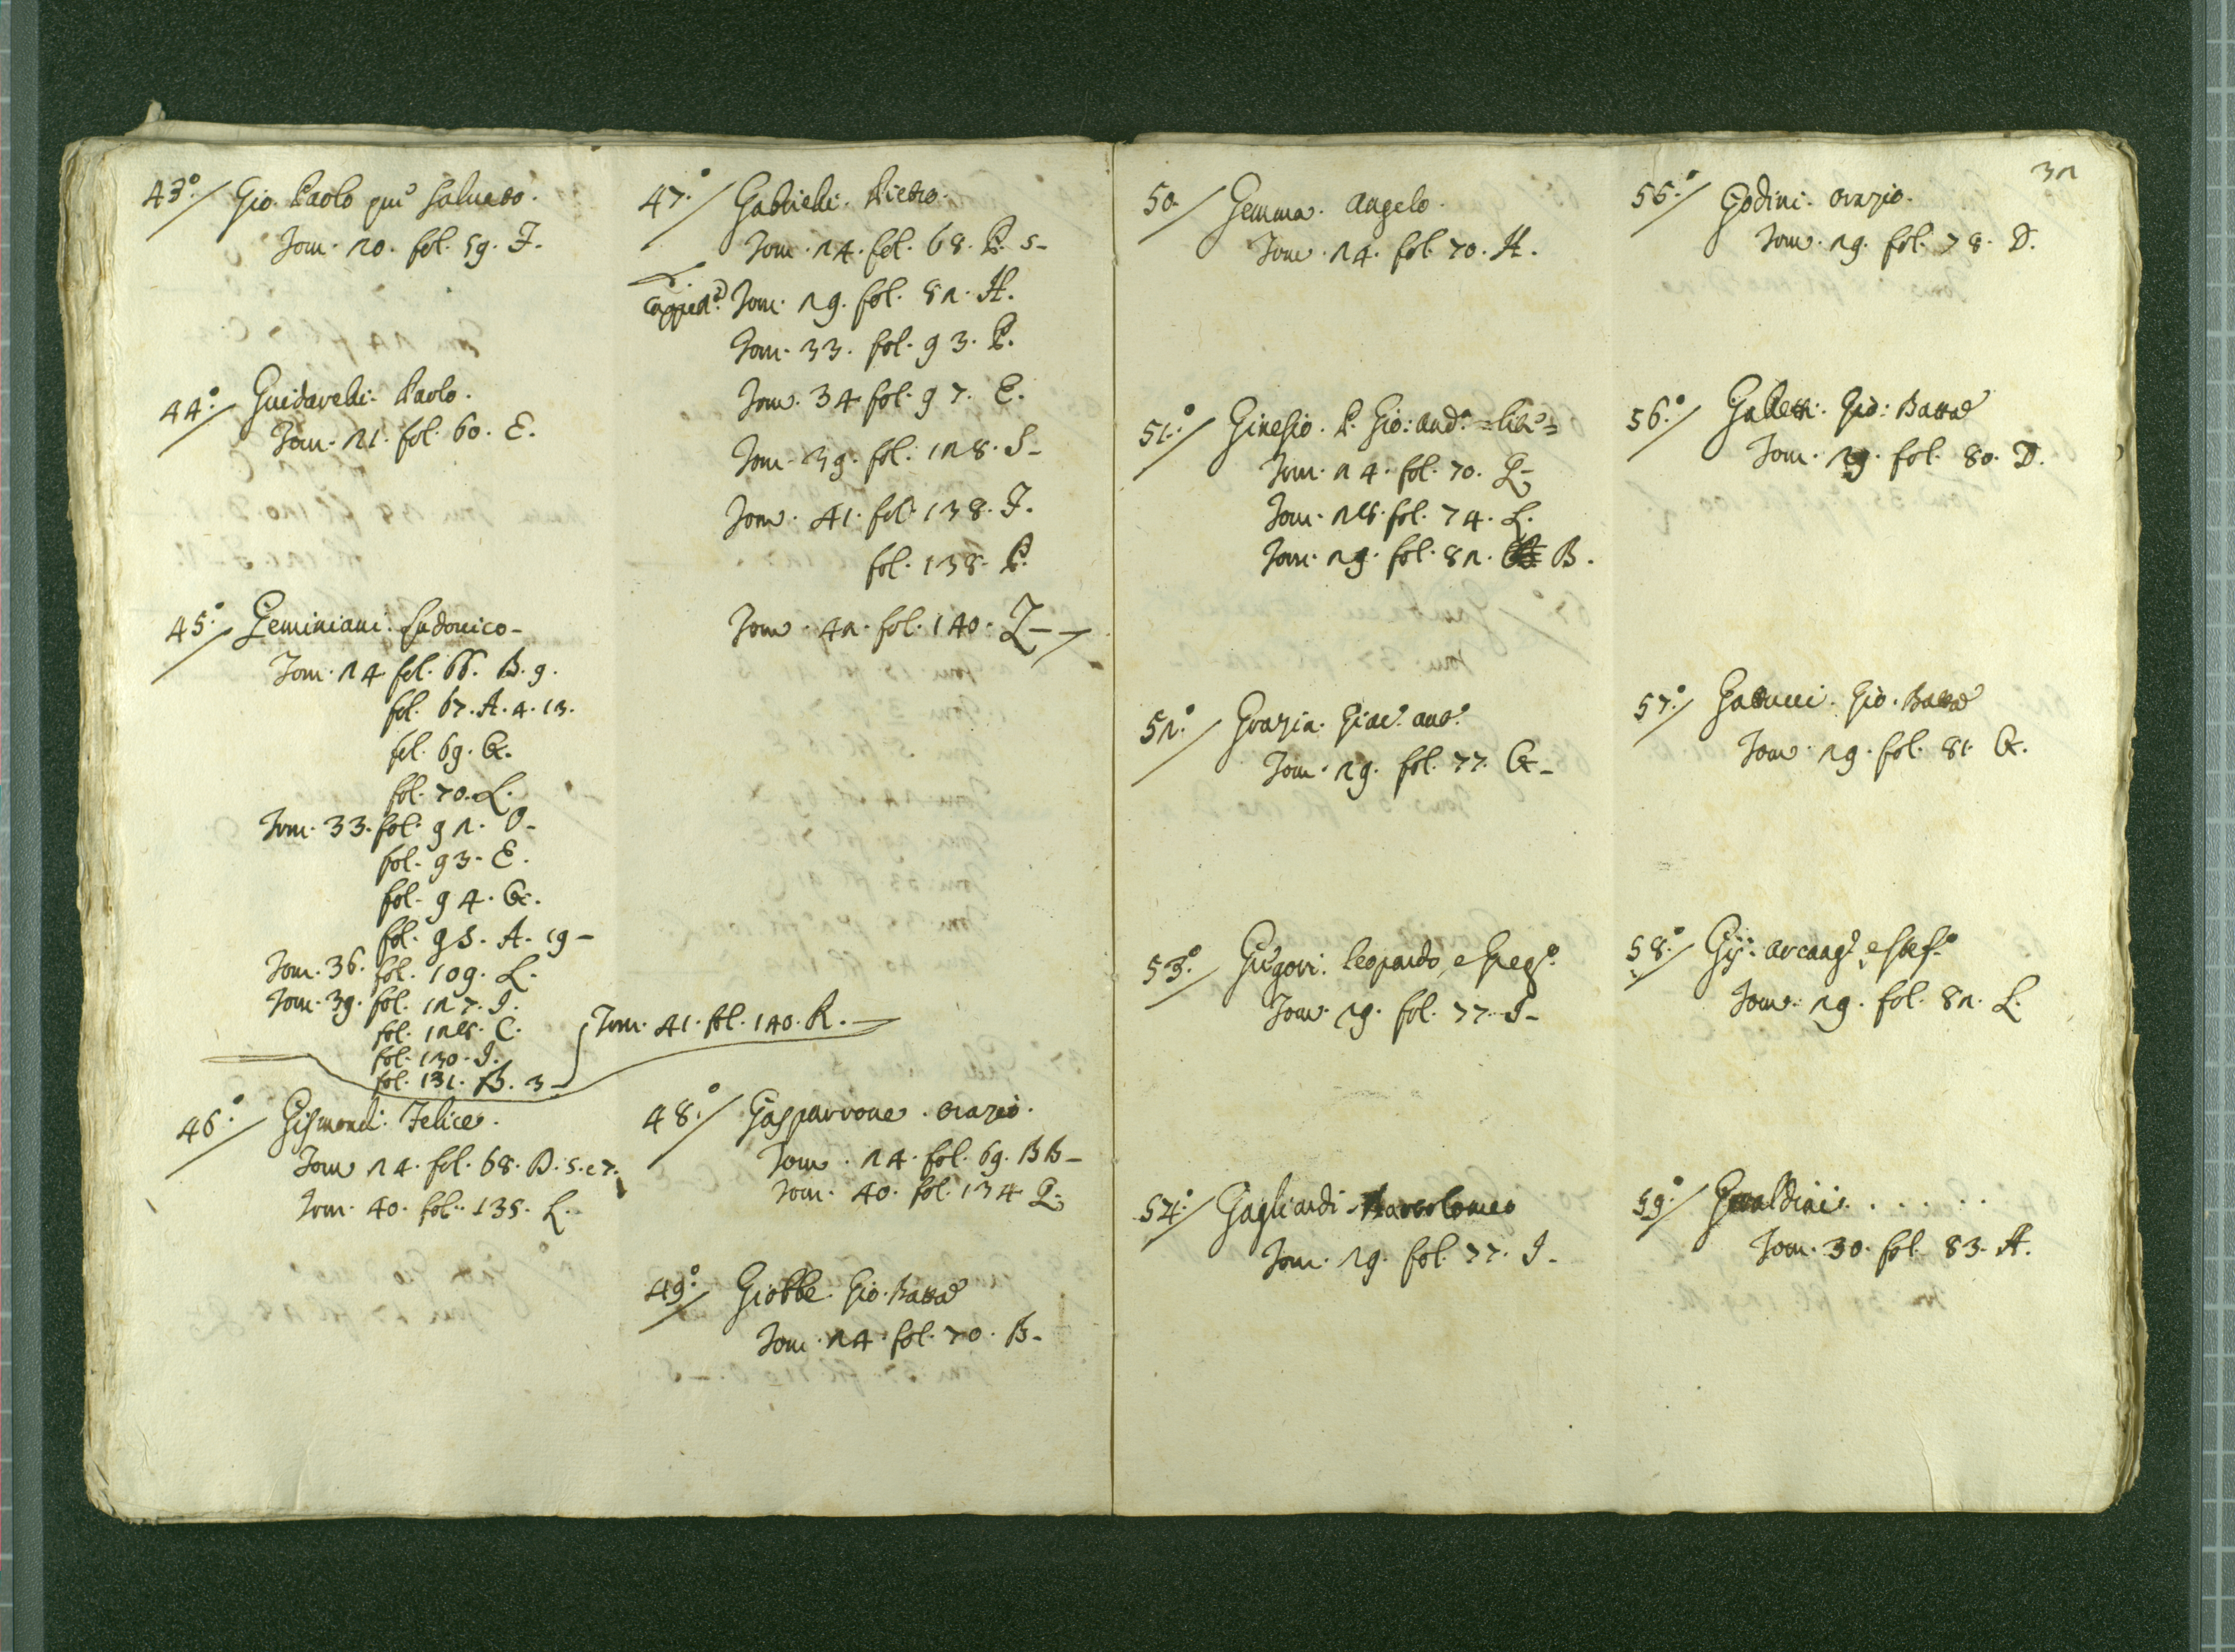 43.º Gio. Paolo qm̃ Saluato.
Tom. 20. fol. 59. F.
44.º Guidarelli. Paolo.
Tom. 21. fol. 60. E.
45.º Geminiani. Ludouico -
Tom. 24 fol. 66. B. 9.
fol. 67. A. 4. 13.
fol. 69. G.
fol. 70. L.
Tom. 33. fol. 92. O -
fol. 93. E.
fol. 94. G.
fol. 95. A. 19 -
Tom. 36. fol. 109. L.
Tom. 39. fol. 127. I.
fol. 128. C.
fol. 130. I.
fol. 131. B. 3 -
Tom. 41. fol. 140. R. -
46.º Gismondi. Felice.
Tom. 24. fol. 68. D. 5. e 7.
Tom. 40. fol. 135. L.
47.º Gabrielli. Pietro.
Tom. 24. fol. 68. P. 5 -
Tom. 29. fol. 82. H.
Tom. 33. fol. 93. P.
Tom. 34 fol. 97. E.
Tom. 39. fol. 128. S -
Tom. 41. fol. 138. F.
fol. 138. P.
Tom. 42. fol. 140. Z -
48.º Gasparrone. Orazio.
Tom. 24. fol. 69. BB -
Tom. 40. fol. 134 Q.
49.º Giobbe. Gio. Batta
Tom. 24. fol. 70. B -
32
50. Gemma. Angelo.
Tom. 24. fol. 70. H.
51.º Ginesio. P. Gio: And.ª
Tom. 24. fol. 70. Q -
Tom. 28. fol. 74. L.
Tom. 29. fol. 82. B.
52.º Grazia. Giac.º Ant.º
Tom. 29. fol. 77. G -
53.º Grigori. Leopardo, e Greg.º
Tom. 29. fol. 77. I -
54.º Gagliardi. Bartolomeo
Tom. 29. fol. 77. I -
55.º Godini. Orazio.
Tom. 29. fol. 78. D.
56.º Galletti. Gio: Batta
Tom. 29. fol. 80. D.
57.º Gattucci. Gio. Batta
Tom. 29. fol. 81. G.
58.º Gij. Arcang.º, e Stef.º
Tom. 29. fol. 82. L.
59.º Geraldini. . . . . .
Tom. 30. fol. 83. A.